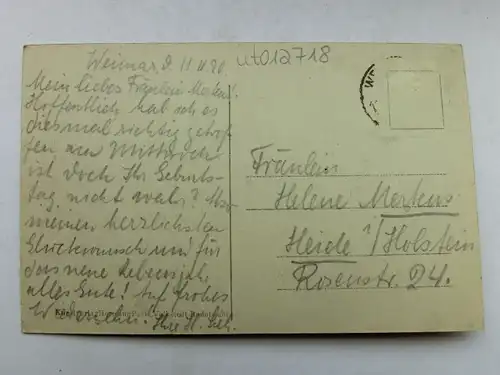 Weimar, d. 11.11.20.
ut012718
Mein liebes Fräulein Merkus!
Hoffentlich hab ich es
diesmal richtig getrof-
fen am Mittwoch
ist doch Ihr Geburts-
tag, nicht wahr?
meinen herzlichsten
Glückwunsch und für
das neue Lebensjahr
alles Gute! Auf frohes
Wiedersehn. Ihre H.
Fräulein
Helene Merkus
Heide i/Holstein
Rosenstr. 24.